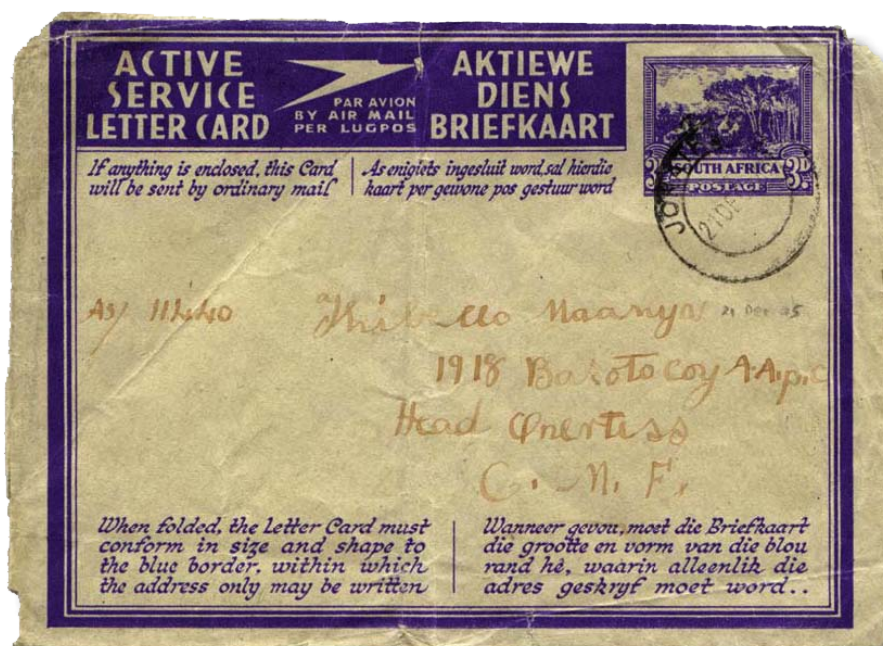 ACTIVE
SERVICE
LETTER CARD
PAR AVION
BY AIR MAIL
PER LUGPOS
AKTIEWE
DIENS
BRIEFKAART
3D SOUTH AFRICA 3D
POSTAGE
If anything is enclosed, this Card
will be sent by ordinary mail
As enigiets ingesluit word, sal hierdie
kaart per gewone pos gestuur word
21 DE
AS/ 11440
21 Dec 45
1918 Basoto coy A.A.p.c
Head
C. M. F.
When folded, the Letter Card must
conform in size and shape to
the blue border, within which
the address only may be written
Wanneer gevou, moet die Briefkaart
die grootte en vorm van die blou
rand hê, waarin alleenlik die
adres geskryf moet word..